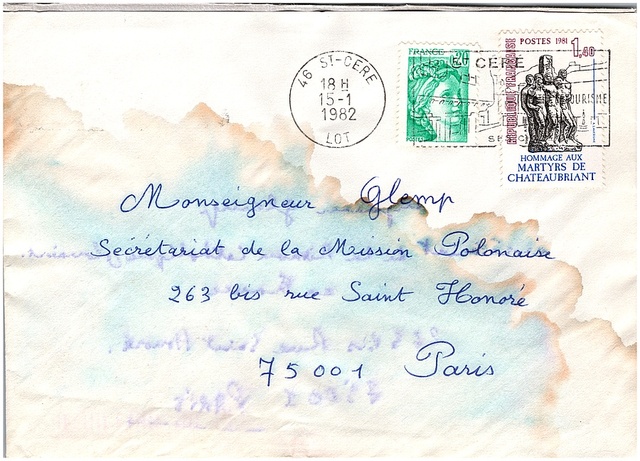 46 ST-CERE
18 H
15-1
1982
LOT
FRANCE
POSTES 1981 1,40
REPUBLIQUE FRANÇAISE
ST CERE
TOURISME
HOMMAGE AUX
MARTYRS DE
CHATEAUBRIANT
Monseigneur Glemp
Secrétariat de la Mission Polonaise
263 bis rue Saint Honoré
75001 Paris